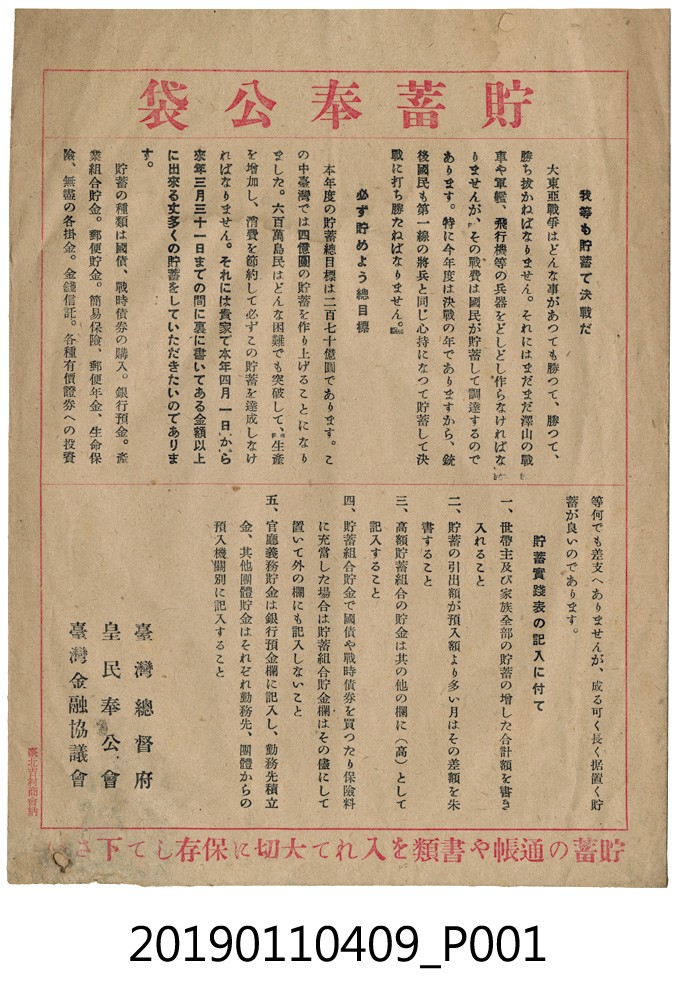 貯蓄奉公袋
我等も貯蓄で決戰だ
大東亞戰爭はどんな事があつても勝つて、勝つて、
勝ち拔かねばなりません。それにはまだまだ澤山の戰
車や軍艦、飛行機等の兵器をどしどし作らなければな
りませんが、その戰費は國民が貯蓄して調達するので
あります。特に今年度は決戰の年でありますから、銃
後國民も第一線の將兵と同じ心持になつて貯蓄して決
戰に打ち勝たねばなりません。
必ず貯めよう總目標
本年度の貯蓄總目標は二百七十億圓であります。こ
の中臺灣では四億圓の貯蓄を作り上げることになり
ました。六百萬島民はどんな困難でも突破して、生產
を增加し、消費を節約して必ずこの貯蓄を達成しなけ
ればなりません。それには貴家で本年四月一日から
來年三月三十一日までの間に裏に書いてある金額以上
に出來る丈多くの貯蓄をしていただきたいのでありま
す。
貯蓄の種類は國債、戰時債券の購入。銀行預金。產
業組合貯金。郵便貯金。簡易保險、郵便年金、生命保
險、無盡の各掛金。金錢信託。各種有價證券への投資
等何でも差支へありませんが、成る可く長く据置く貯
蓄が良いのであります。
貯蓄實踐表の記入に付て
一、世帶主及び家族全部の貯蓄の增した合計額を書き
入れること
二、貯蓄の引出額が預入額より多い月はその差額を朱
書すること
三、高額貯蓄組合の貯金は其の他の欄に（高）として
記入すること
四、貯蓄組合貯金で國債や戰時債券を買つたり保險料
に充當した場合は貯蓄組合貯金欄はその儘にして
置いて外の欄にも記入しないこと
五、官廳義務貯金は銀行預金欄に記入し、勤務先積立
金、其他團體貯金はそれぞれ勤務先、團體からの
預入機關別に記入すること
臺灣總督府
皇民奉公會
臺灣金融協議會
臺北吉村商會納
貯蓄の通帳や書類を入れて大切に保存して下さ
20190110409_P001